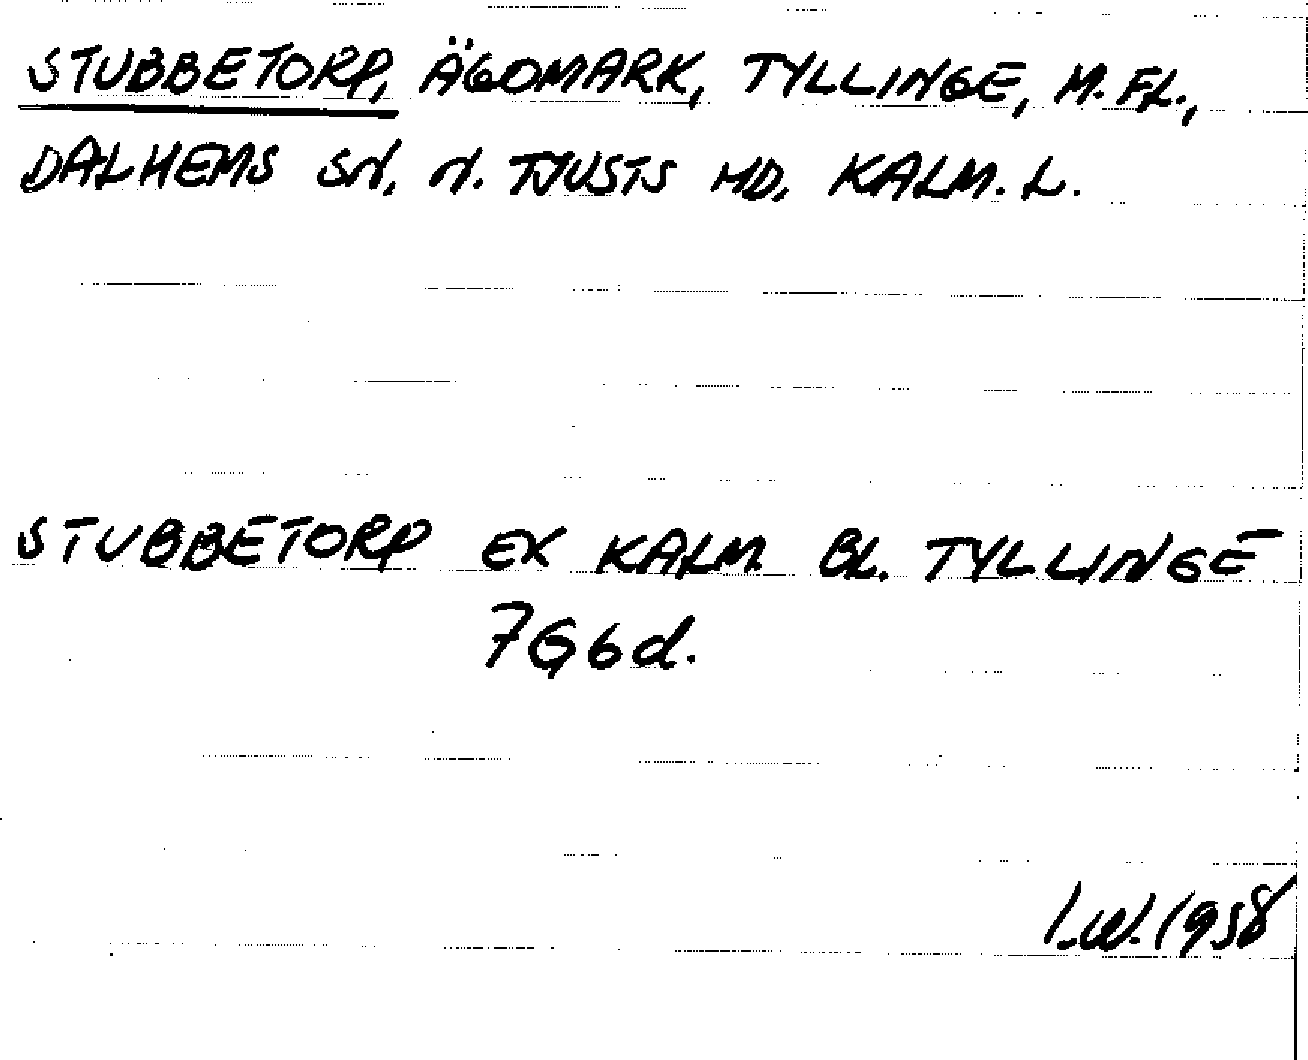 STUBBETORP, ÄGOMARK, TYLLINGE, M.FL.,
DALHEMS SN, N. TJUSTS HD, KALM. L.
STUBBETORP EX KALM. BL. TYLLINGE
7G6d.
I.W. 1958